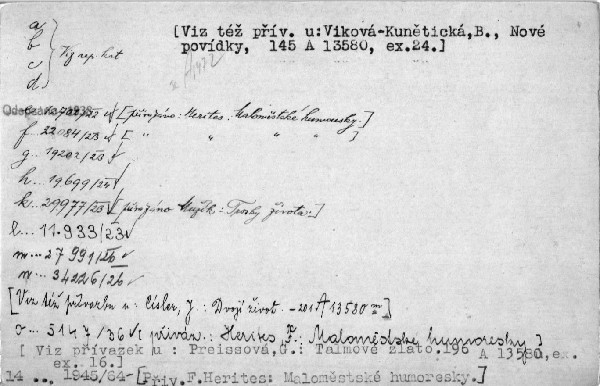 [Viz též přív. u:Viková-Kunětická,B., Nové
povídky, 145 A 13580, ex.24.]
a
b
c
d
Viz rep. list
e... /22 [přivázáno: Herites: Maloměstské humoresky.]
f... 22084/23 [ " " " " ]
g... 19202/23
h... 19699/24
k... 29977/23 [přivázáno Mužík: Trosky života.]
l... 11.933/23
m... 27991/26
n... 34226/26
[Viz též přívazek u: Císler, J.: Dvojí život. -201 A 13580 m]
o... 5147/36 [přiváz.: Herites, F.: Maloměstské humoresky.]
[ Viz přívazek u : Preissová,G.: Talmové zlato.196 A 13580,ex.
ex. 16.]
14 ... 1945/64-[Přiv.F.Herites: Maloměstské humoresky.]